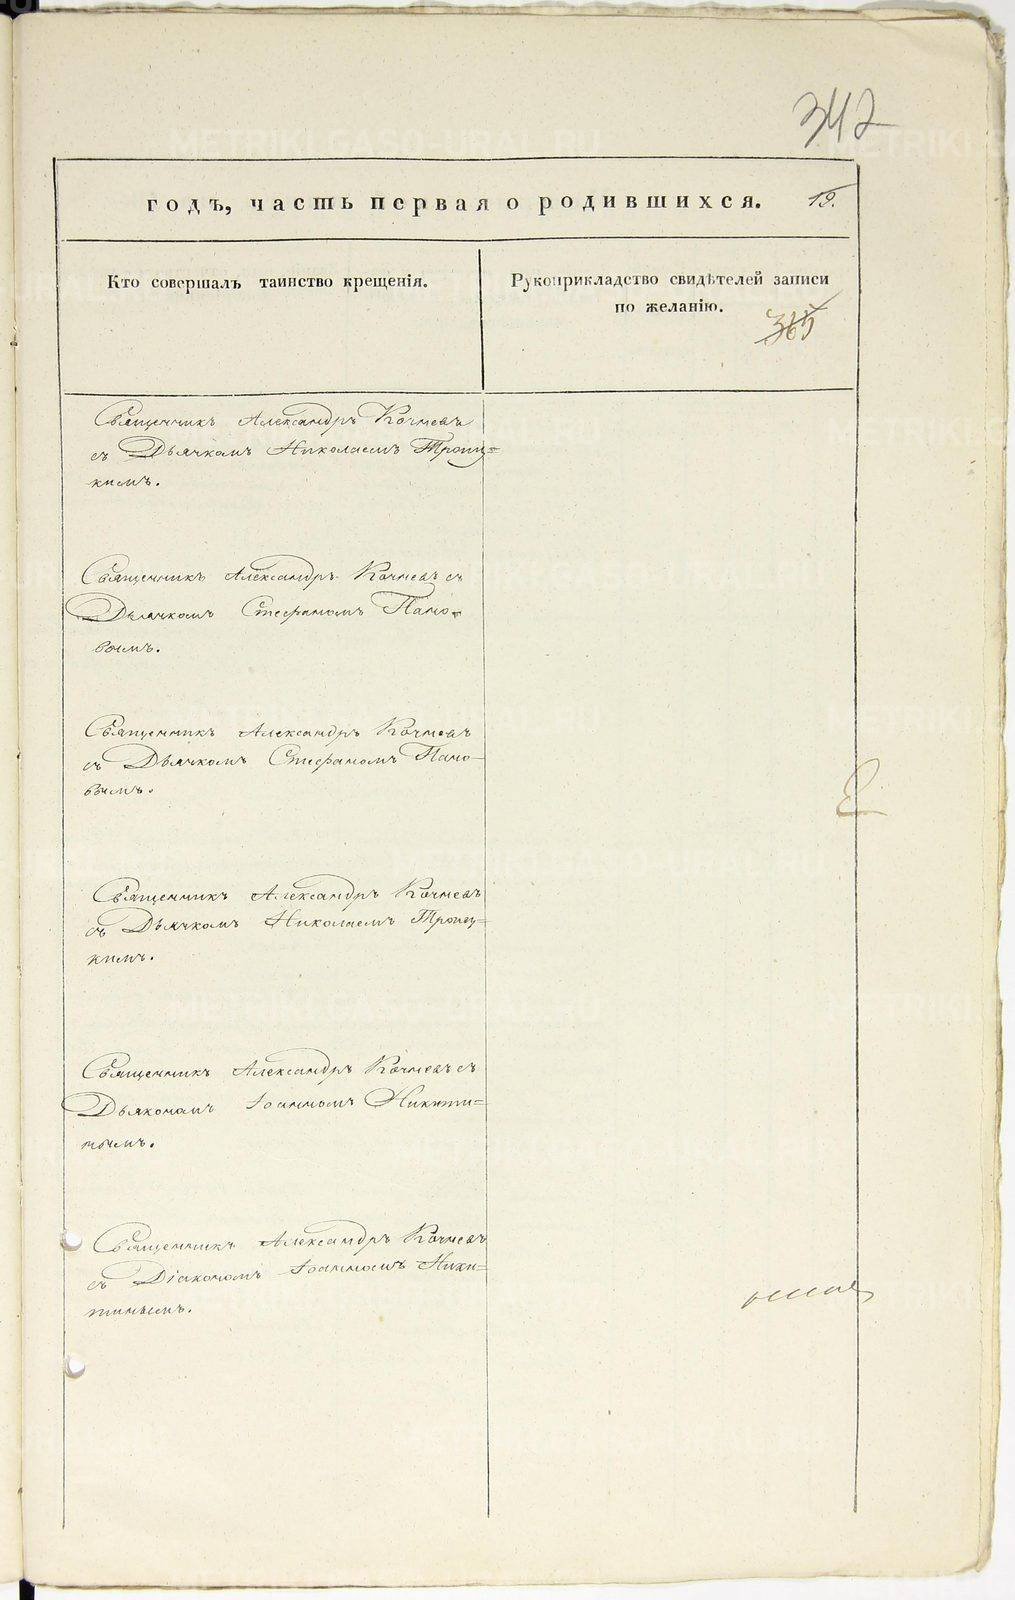 342
годъ, часть первая о родившихся. 19.
Кто совершалъ таинство крещенія.
Рукоприкладство свидѣтелей записи
по желанію.
365
Священникъ Александръ Кочневъ
съ Дьячкомъ Николаемъ Троиц=
кимъ.
Священникъ Александръ Кочневъ съ
Дьячкомъ Стефаномъ Пано-
вымъ.
Священникъ Александръ Кочневъ
съ Дьячкомъ Стефаномъ Пано-
вымъ.
Священникъ Александръ Кочневъ
съ Дьячкомъ Николаемъ Троиц=
кимъ.
Священникъ Александръ Кочневъ съ
Дьякономъ Іоанномъ Никити=
нымъ.
Священникъ Александръ Кочневъ
съ Діакономъ Іоанномъ Ники=
тинымъ.
METRIKI.GASO-URAL.RU